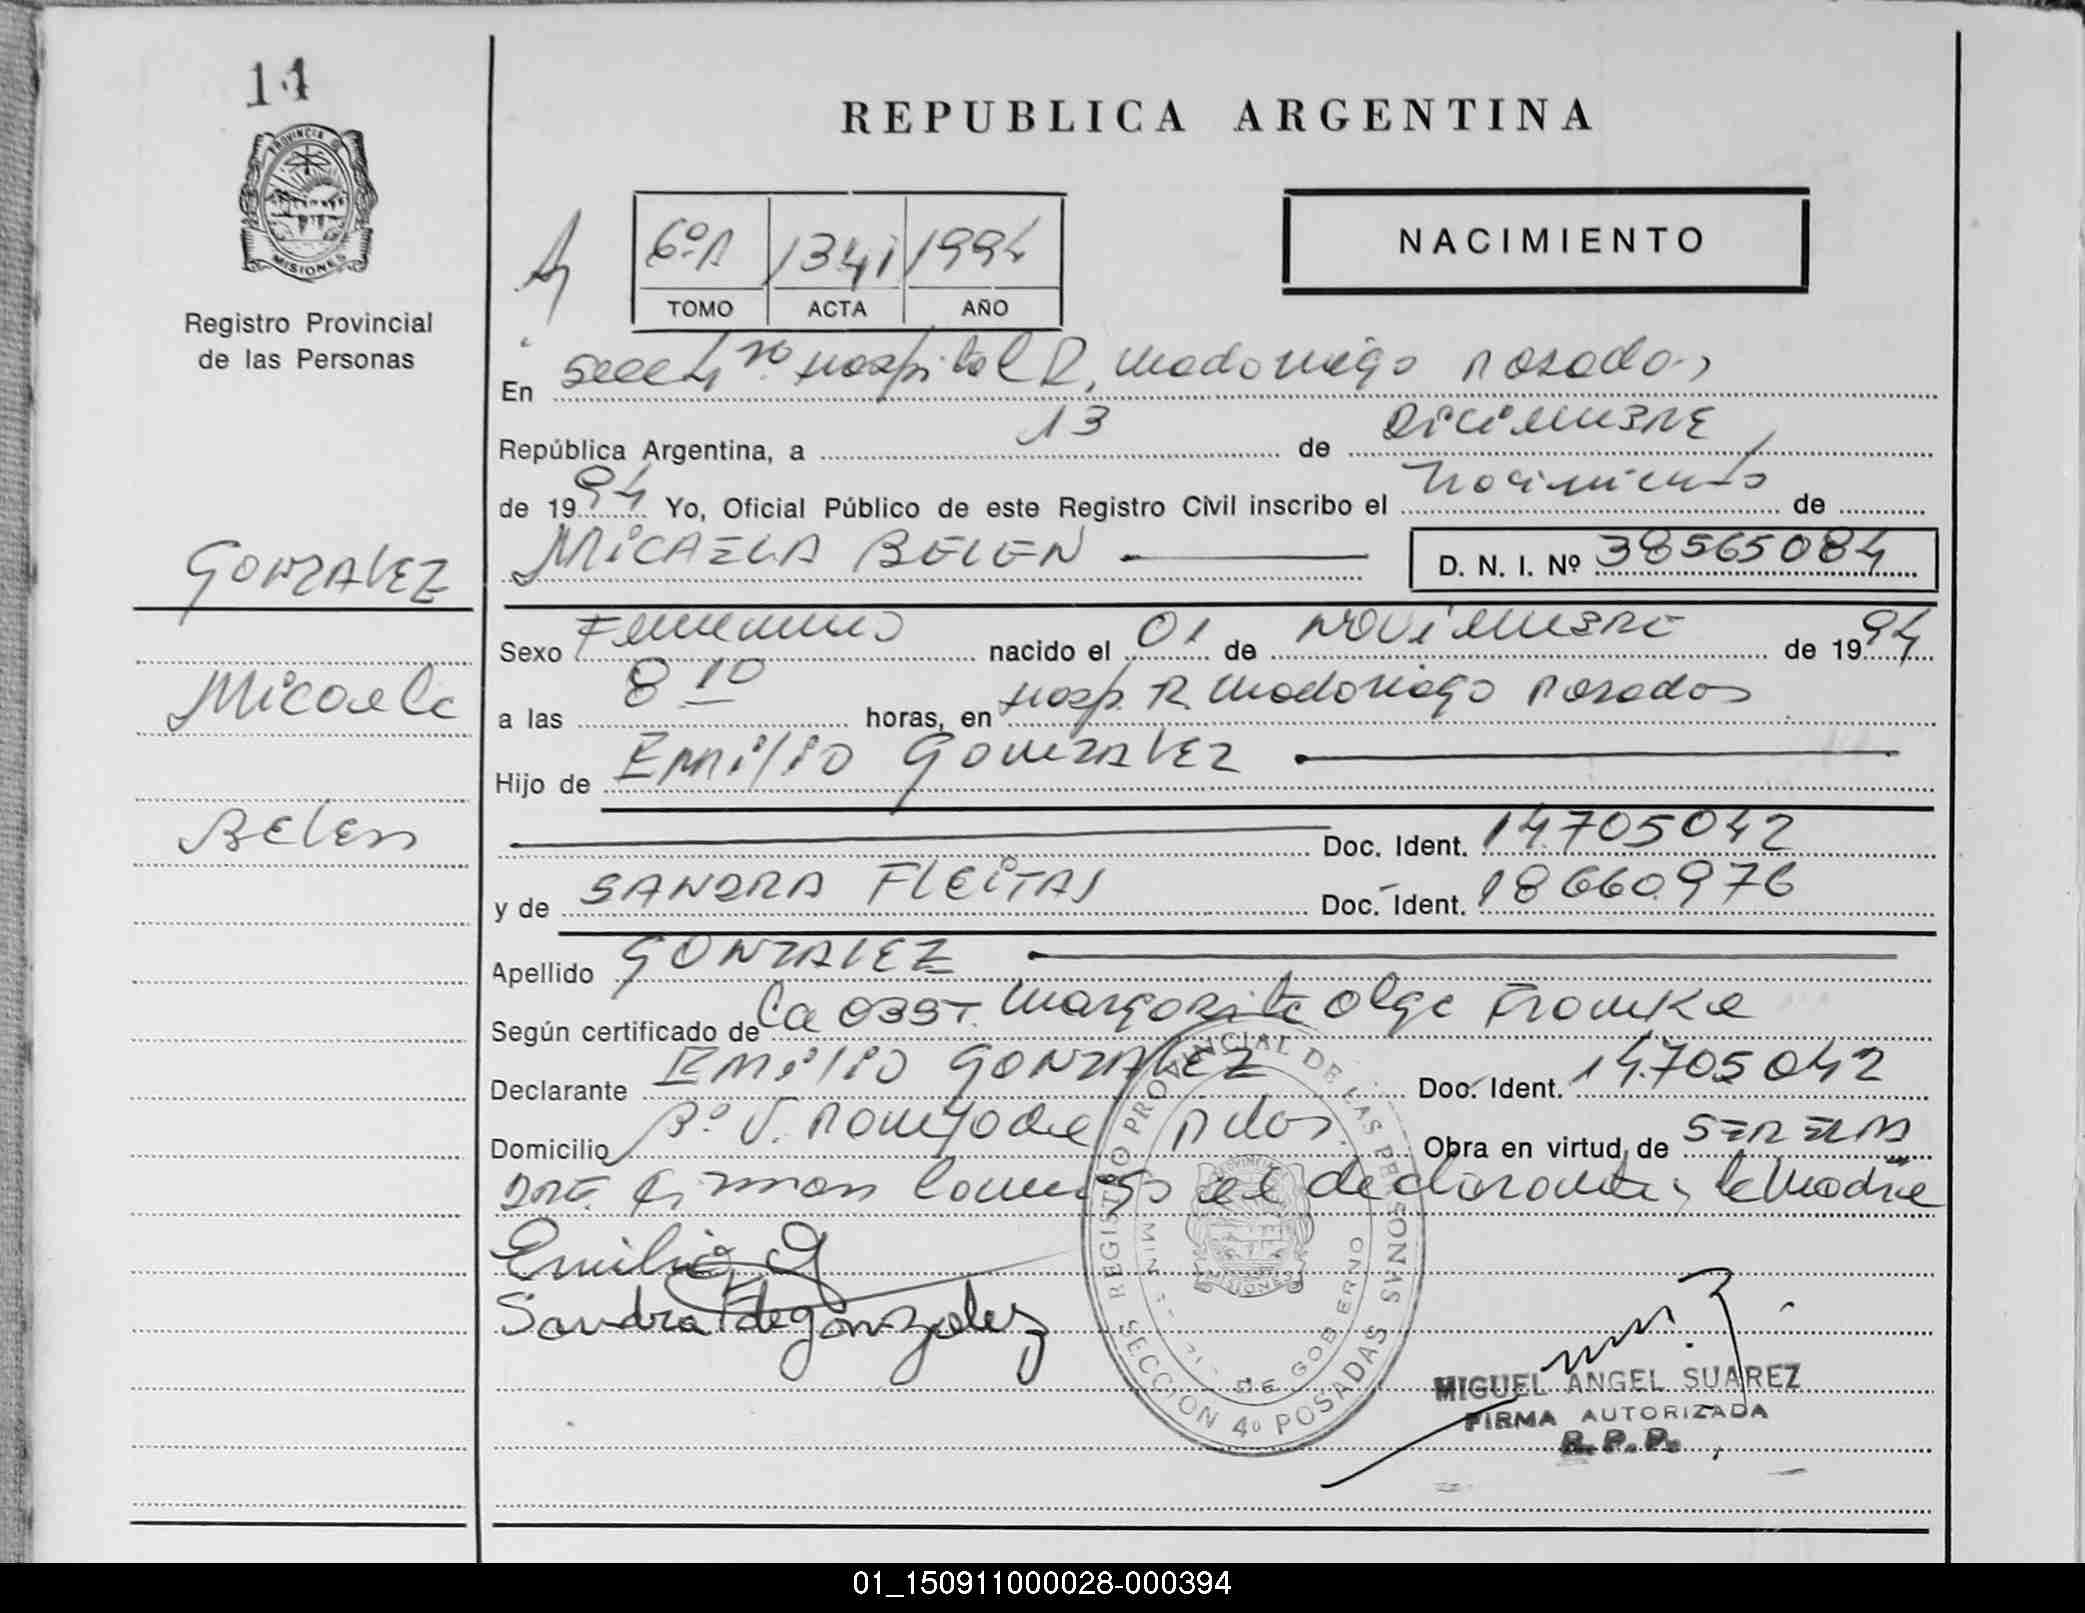 14
PROVINCIA D
MISIONES
Registro Provincial
de las Personas
GONZALEZ
Micaela
Belen
REPUBLICA ARGENTINA
6º A 1341 1994
TOMO ACTA AÑO
NACIMIENTO
En Secc 4ta Hospital R. Madariaga Posadas
República Argentina, a 13 de Diciembre
de 1994 Yo, Oficial Público de este Registro Civil inscribo el Nacimiento de
MICAELA BELEN D. N. I. Nº 38565084
Sexo Femenino nacido el 01 de Noviembre de 1994
a las 8 10 horas, en Hosp. R. Madariaga Posadas
Hijo de Emilio Gonzalez
Doc. Ident. 14.705042
y de SANDRA FLEITAS Doc. Ident. 18660.976
Apellido GONZALEZ
Según certificado de La OBST. Margarita Olga Franke
Declarante EMILIO GONZALEZ Doc. Ident. 14.705042
Domicilio Bº V. Pdas. Obra en virtud de
firman conmigo el declarante y la Madre
Emilio G
Sandra F de gonzalez
REGISTRO PROVINCIAL DE LAS PERSONAS
DE GOBIERNO
SECCION 4º POSADAS
MISIONES
MIGUEL ANGEL SUAREZ
FIRMA AUTORIZADA
R. P. P.
01_150911000028-000394